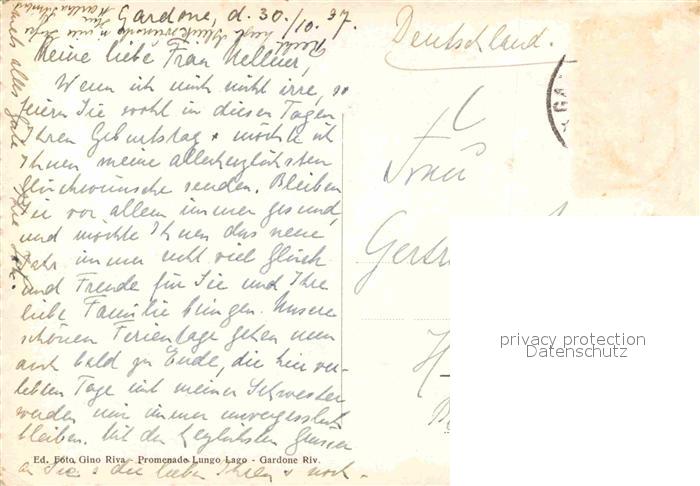 Gardone, d. 30./10. 37.
Meine liebe Frau Kellner,
Wenn ich mich nicht irre, so
feiern Sie wohl in diesen Tagen
Ihren Geburtstag + möchte ich
Ihnen meine allerherzlichsten
Glückwünsche senden. Bleiben
Sie vor allem immer gesund,
und möchte Ihnen das neue
Jahr immer recht viel Glück
und Freude für Sie und Ihre
liebe Familie bringen. Unsere
schönen Ferientage gehen nun
auch bald zu Ende, die hier ver-
lebten Tage mit meiner Schwester
werden mir immer unvergesslich
bleiben. Mit den herzlichsten Grüssen
an Sie + die lieben Ihren + noch-
mals alles Gute
Recht herzl.
Deutschland.
Frau
Gertr
H-
Ed. Foto Gino Riva - Promenade Lungo Lago - Gardone Riv.
privacy protection
Datenschutz